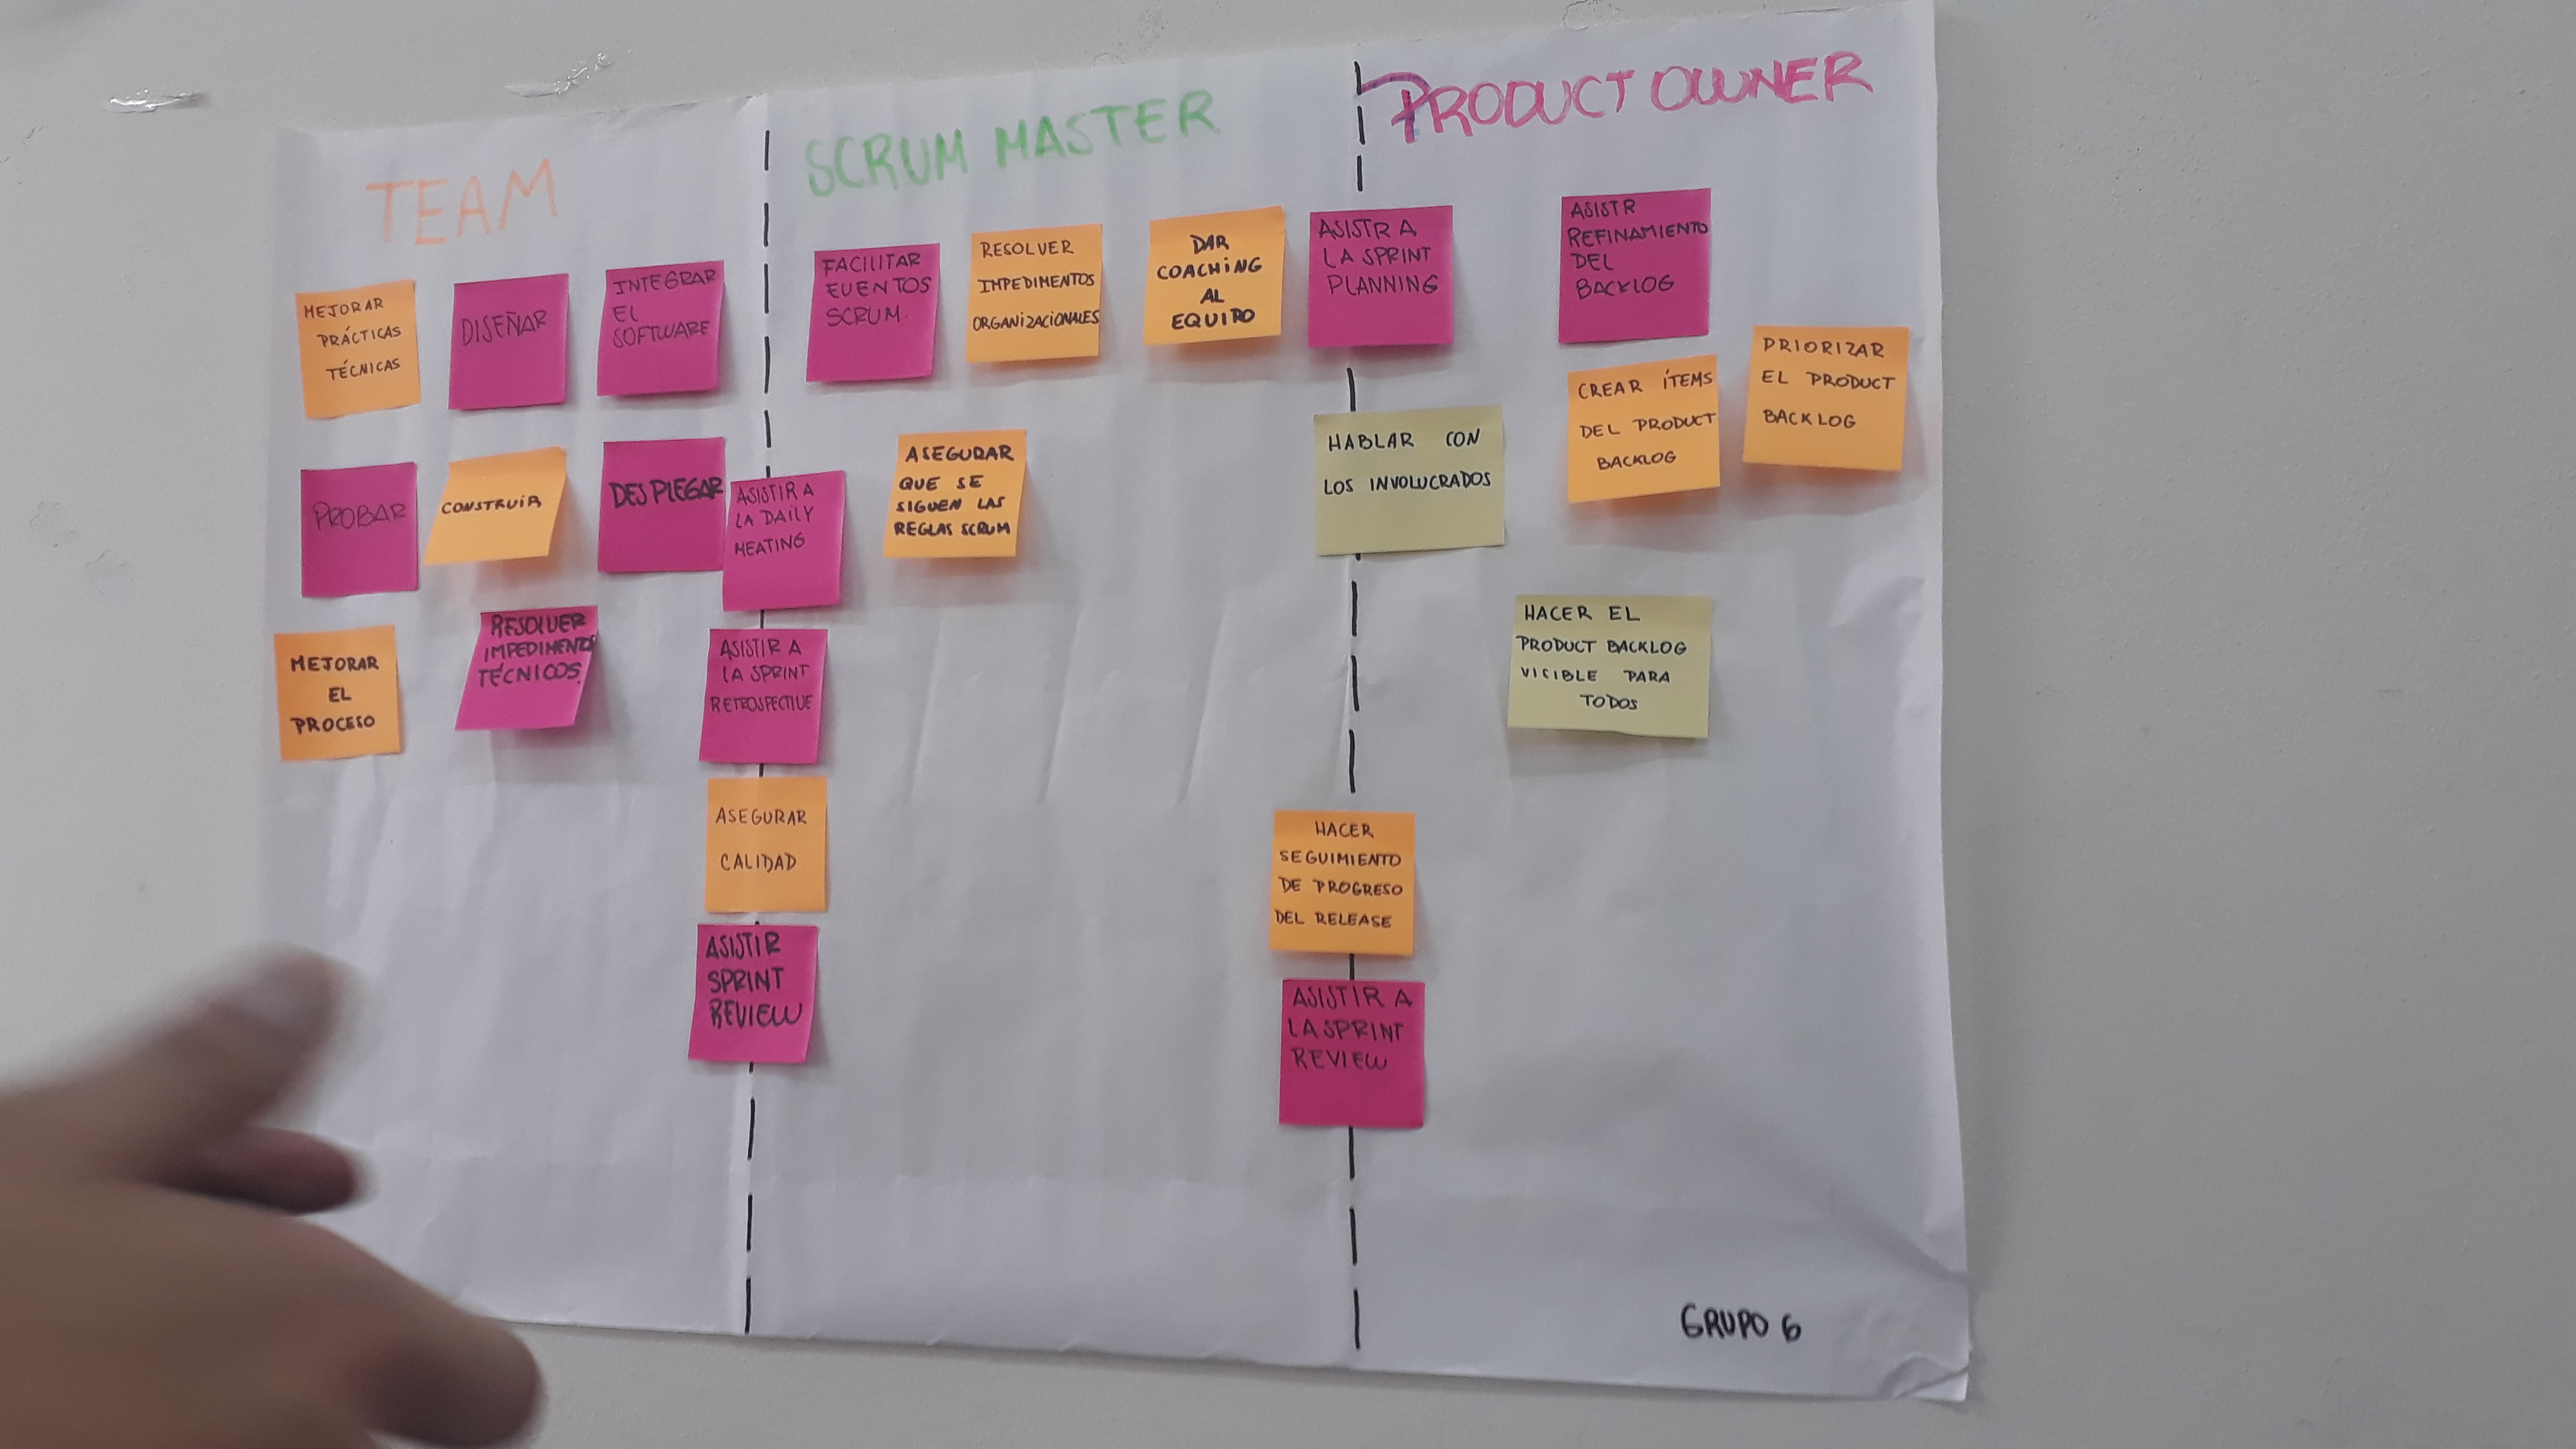 TEAM
SCRUM MASTER
PRODUCT OWNER
MEJORAR
PRÁCTICAS
TÉCNICAS
DISEÑAR
INTEGRAR
EL
SOFTWARE
PROBAR
CONSTRUIR
DESPLEGAR
MEJORAR
EL
PROCESO
RESOLVER
IMPEDIMENTOS
TÉCNICOS.
ASISTIR A
LA DAILY
MEATING
ASISTIR A
LA SPRINT
RETROSPECTIVE
ASEGURAR
CALIDAD
ASISTIR
SPRINT
REVIEW
FACILITAR
EVENTOS
SCRUM.
RESOLVER
IMPEDIMENTOS
ORGANIZACIONALES
DAR
COACHING
AL
EQUIPO
ASEGURAR
QUE SE
SIGUEN LAS
REGLAS SCRUM
ASISTR A
LA SPRINT
PLANNING
HABLAR CON
LOS INVOLUCRADOS
HACER
SEGUIMIENTO
DE PROGRESO
DEL RELEASE
ASISTIR A
LA SPRINT
REVIEW
ASISTR
REFINAMIENTO
DEL
BACKLOG
CREAR ÍTEMS
DEL PRODUCT
BACKLOG
PRIORIZAR
EL PRODUCT
BACKLOG
HACER EL
PRODUCT BACKLOG
VICIBLE PARA
TODOS
GRUPO 6